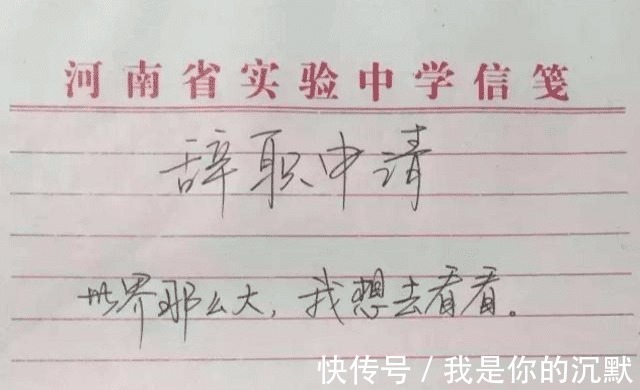 河南省实验中学信笺
辞职申请
世界那么大，我想去看看。
快传号 / 我是你的沉默